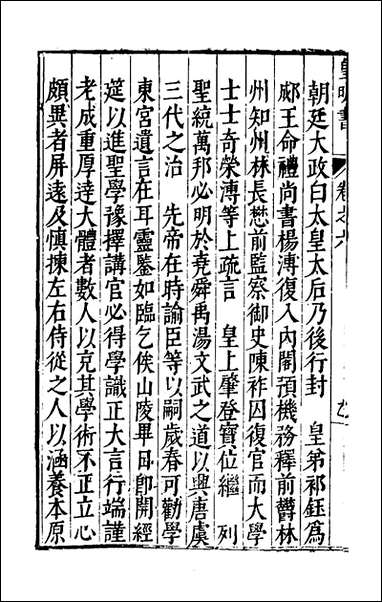 皇明書　卷之六
朝廷大政白太皇太后乃後行封　皇弟祁鈺為
郕王命禮尚書楊溥復入內閣預機務釋前欝林
州知州林長懋前監察御史陳祚囚復官而大學
士士奇榮溥等上疏言　皇上肇登寶位繼　列
聖統萬邦必明於堯舜禹湯文武之道以興唐虞
三代之治　先帝在時諭臣等以嗣歲春可勸學
東宮遺言在耳靈鑒如臨乞俟山陵畢日即開經
筵以進聖學豫擇講官必得學識正大言行端謹
老成重厚達大體者數人以克其學術不正立心
頗異者屏遠及慎揀左右侍從之人以涵養本原